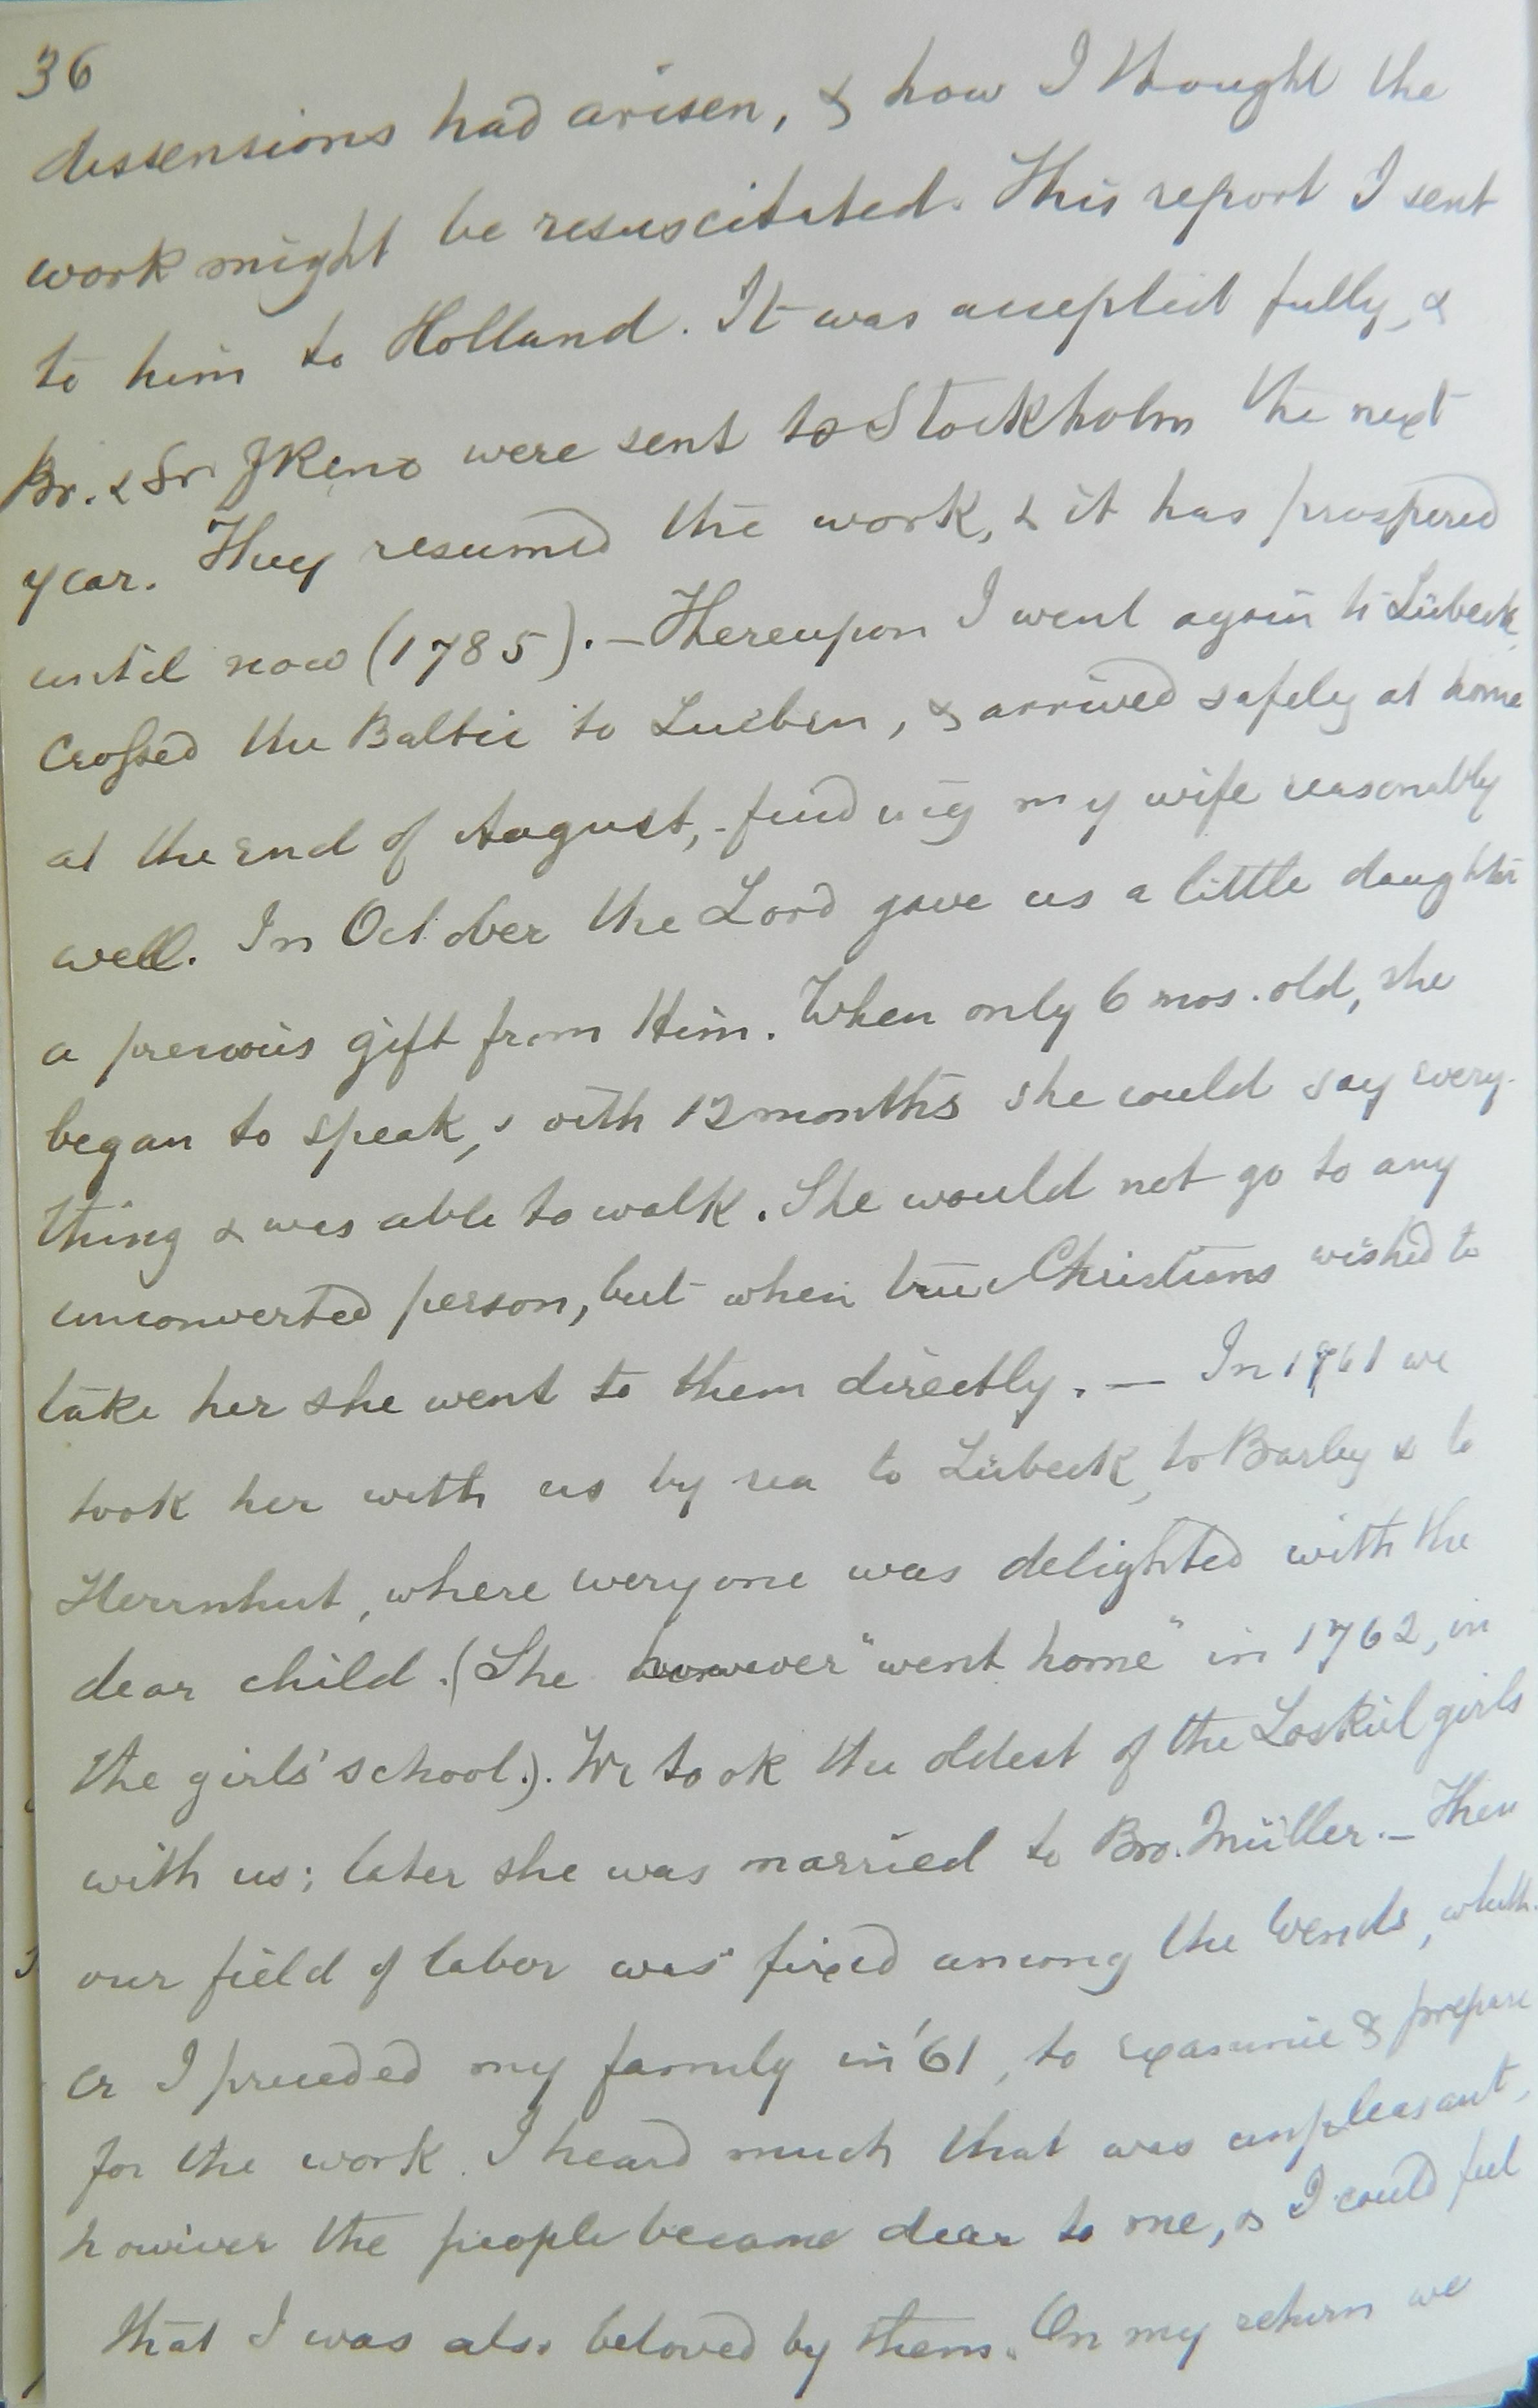 36
dissensions had arisen, & how I thought the
work might be resuscitated. This report I sent
to him to Holland. It was accepted fully, &
Br. & Sr were sent to Stockholm the next
year. They resumed the work, & it has prospered
until now (1785). — Thereupon I went again to Lübeck,
crossed the Baltic to , & arrived safely at home
at the end of August, finding my wife reasonably
well. In October the Lord gave us a little daughter
a precious gift from Him. When only 6 mos. old, she
began to speak, & with 12 months she could say every-
thing & was able to walk. She would not go to any
unconverted person, but when true Christians wished to
take her she went to them directly. — In 1761 we
took her with us by sea to Lübeck, to Barby & to
Herrnhut, where everyone was delighted with the
dear child. (She however "went home" in 1762, in
the girls' school.). We took the oldest of the Loskiel girls
with us; later she was married to Bro. Müller. — Then
our field of labor was fixed among the Wends, whith-
er I preceded my family in '61, to examine & prepare
for the work. I heard much that was unpleasant,
however the people became dear to me, & I could feel
that I was also beloved by them. On my return we